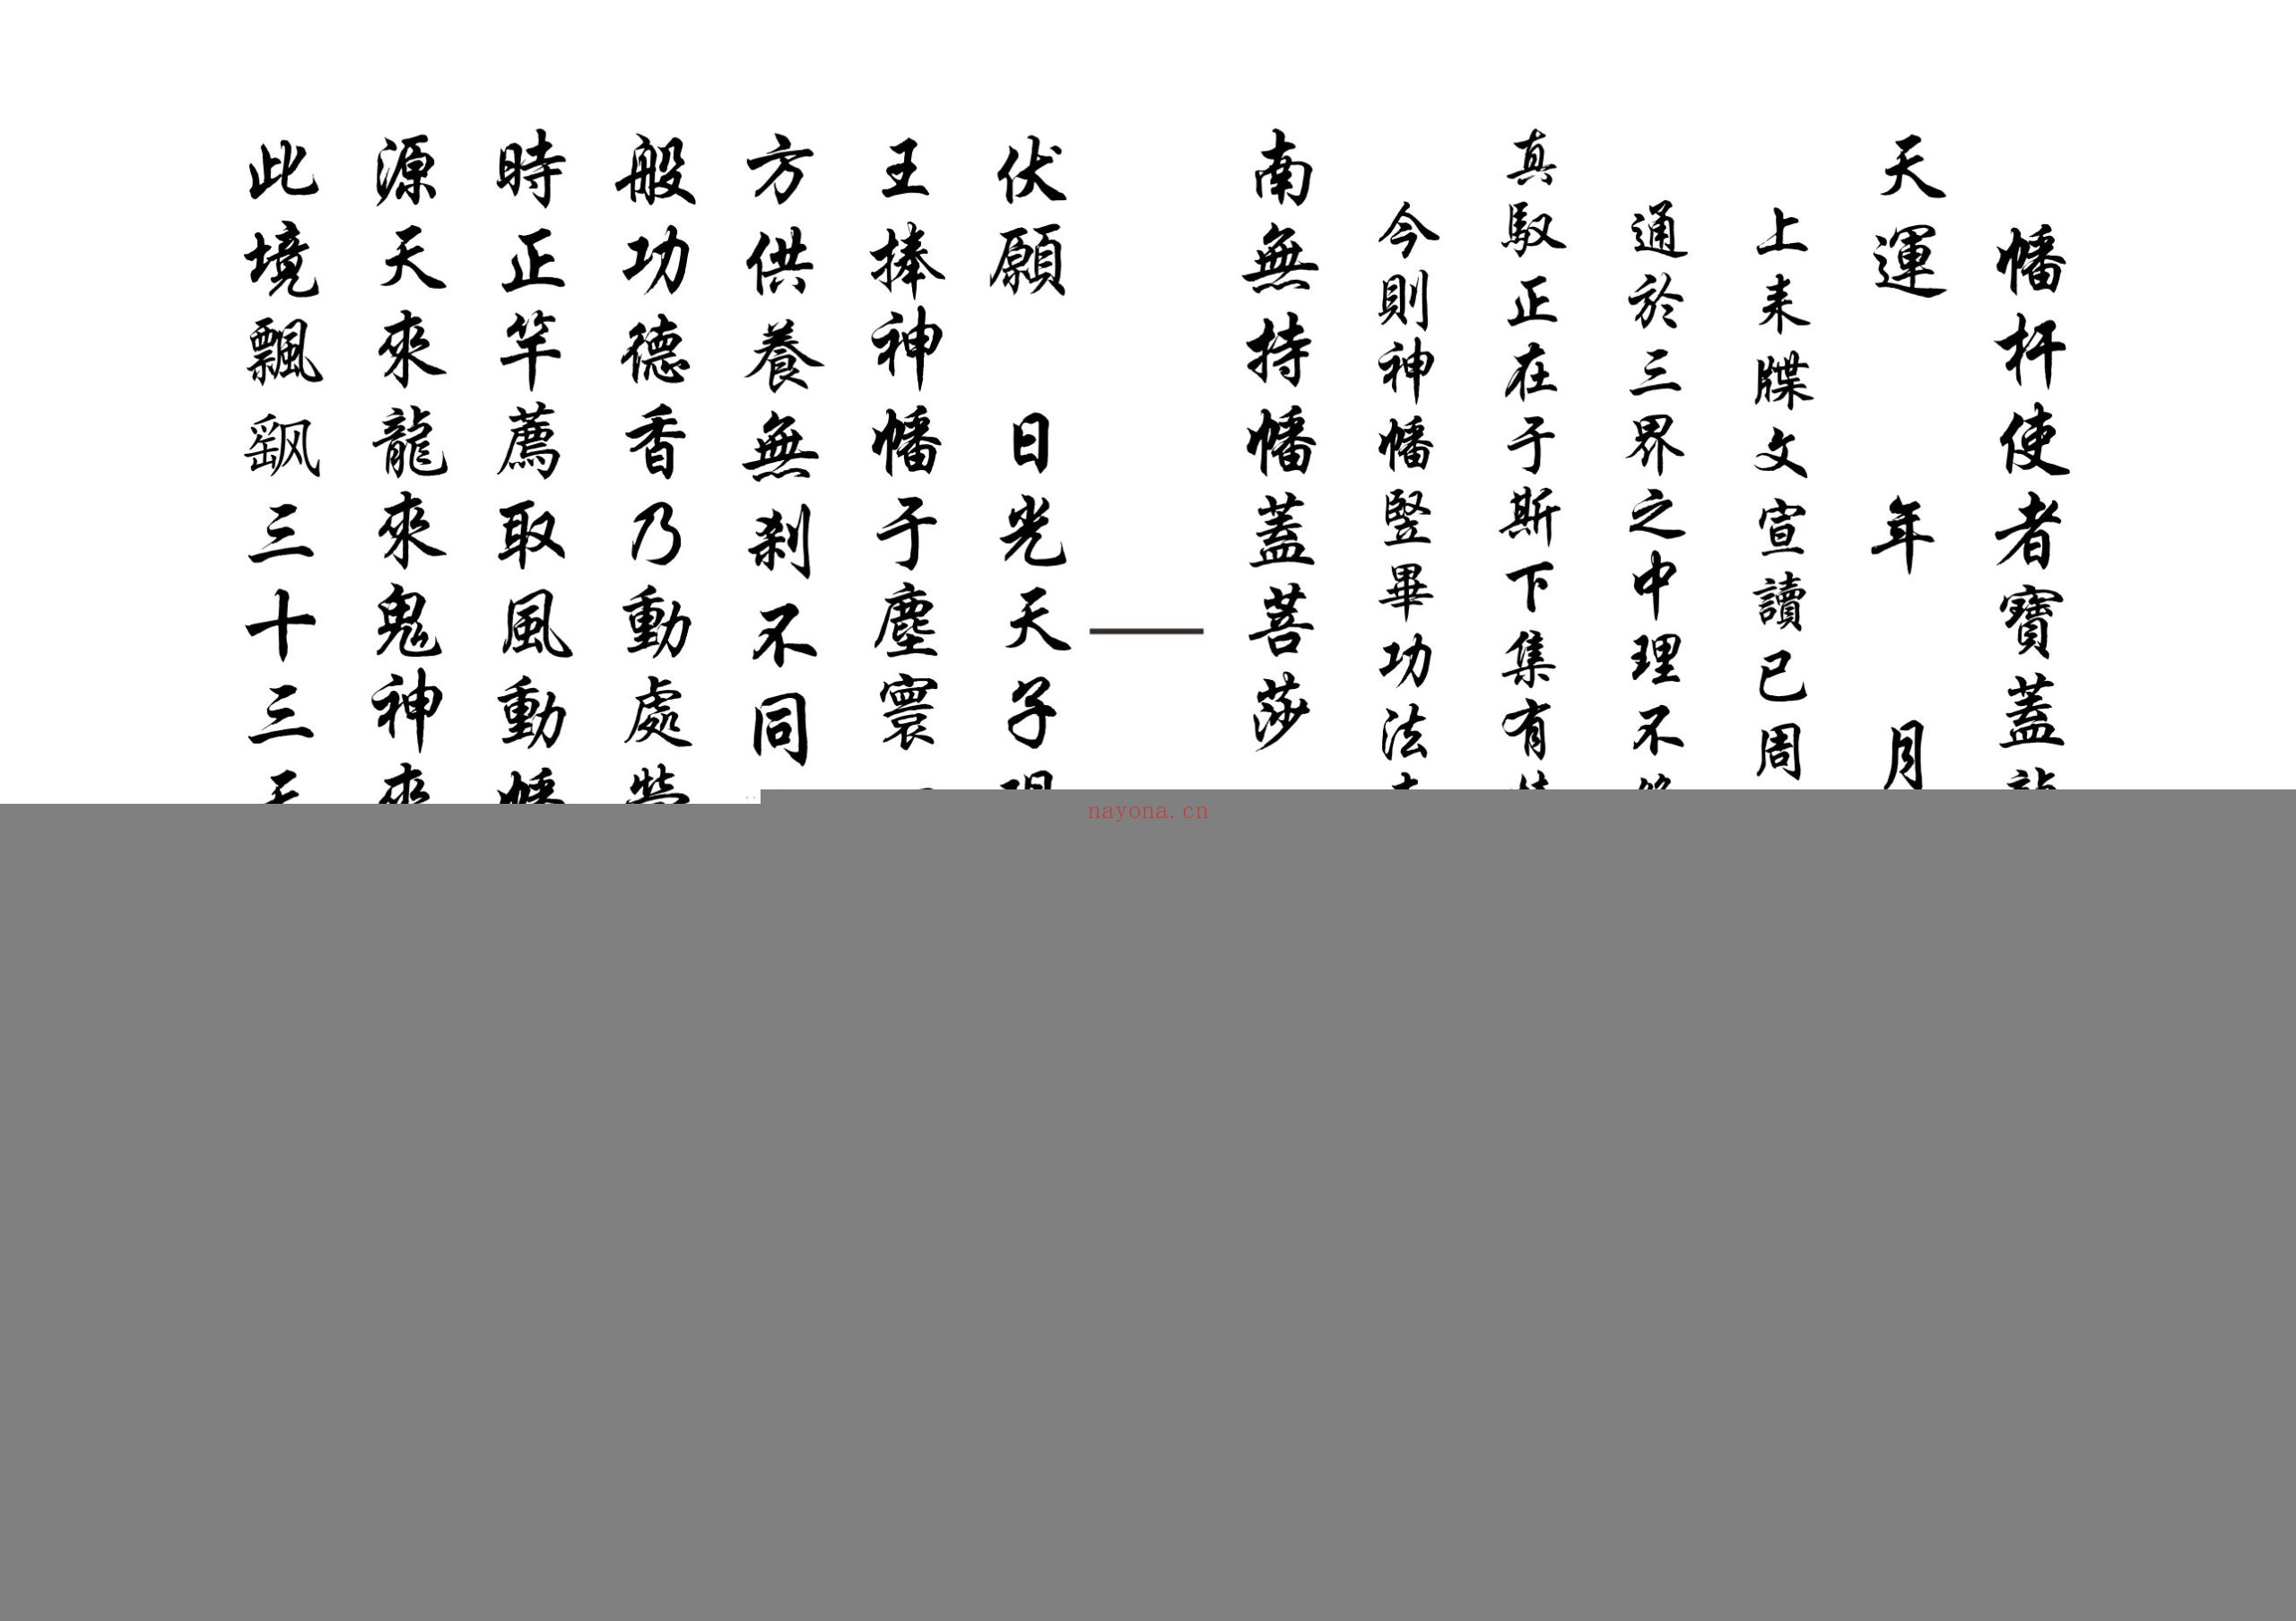 幡杆使者寶蓋
天運 年 月
上来牒文宣讀已周
通於三界之中理不
真馭正在于斯下集有
今則神幡豎畢功法
南無持幡蓋菩薩
伏願 日光天子
王捧神幡于塵寰
方供養無刹不同
般功德香乃動處
時正竿薦取風動
源天來龍來鬼神
此境飄颻三十三
nayona.cn